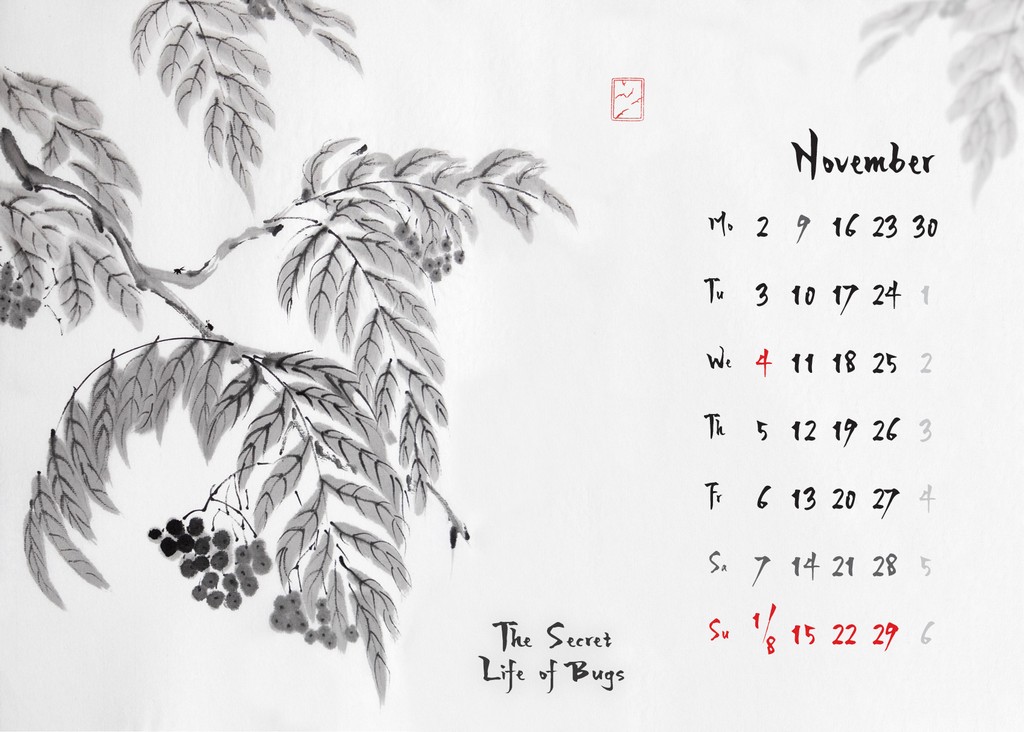 November
Mo 2 9 16 23 30
Tu 3 10 17 24 1
We 4 11 18 25 2
Th 5 12 19 26 3
Fr 6 13 20 27 4
Sa 7 14 21 28 5
Su 1/8 15 22 29 6
The Secret
Life of Bugs